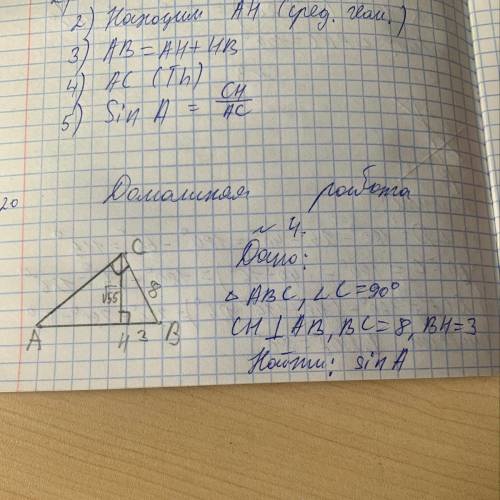 2) Находим AH (сред. геом.)
3) AB = AH + HB
4) AC (Th)
5) Sin A = CH/AC
20
Домашняя работа
~ 4.
Дано:
△ ABC, ∠C = 90°
CH ⊥ AB, BC = 8, BH = 3
Найти: sin A
C
√55
8
A
H
3
B